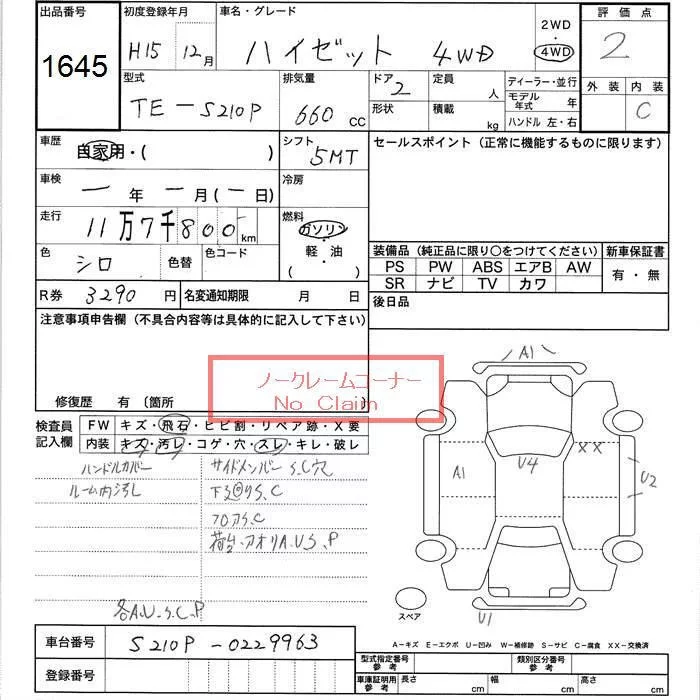 出品番号 初度登録年月 車名・グレード 2WD 4WD 評価点
1645 H15 12月 ハイゼット 4WD 2
型式 排気量 ドア 定員 ディーラー・並行 外装 内装
TE-S210P 660 CC 2 人 モデル年式 年 C
形状 積載 kg ハンドル 左・右
車歴 自家用・( ) シフト 5MT セールスポイント (正常に機能するものに限ります)
車検 一年一月(一日) 冷房
走行 11万7千800km 燃料 ガソリン・軽油 ( )
色 シロ 色替 色コード
装備品 (純正品に限り〇をつけてください) 新車保証書
PS PW ABS エアB AW 有・無
SR ナビ TV カワ
R券 3290円 名変通知期限 月 日 後日品
注意事項申告欄 (不具合内容等は具体的に記入して下さい)
ノークレームコーナー
No Claim
修復歴 有 〔箇所
検査員記入欄 FW キズ・飛石・ヒビ割・リペア跡・X要
内装 キズ・汚レ・コゲ・穴・スレ・キレ・破レ
ハンドルカバー サイドメンバーS.C穴
ルーム内汚し S.C
フロアS.C
荷台.アオリA.U.S.P
各A.U.S.C.P
A1
XX
A1
U4
U2
U1
スペア
車台番号 S210P-0229963
A-キズ E-エクボ U-凹み W-補修跡 S-サビ C-腐食 XX-交換済
登録番号
型式指定番号 参考 類別区分番号 参考
車庫証明用 参考 長さ cm 幅 cm 高さ cm